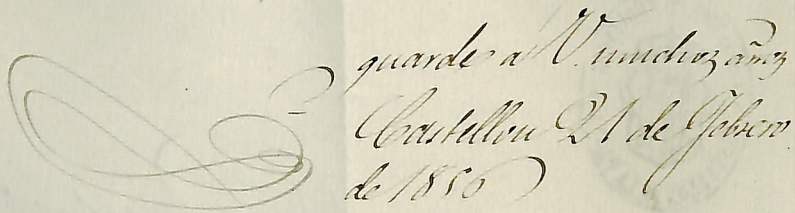 guarde a V. muchoz añoz
Castellon 21 de Febrero
de 1856